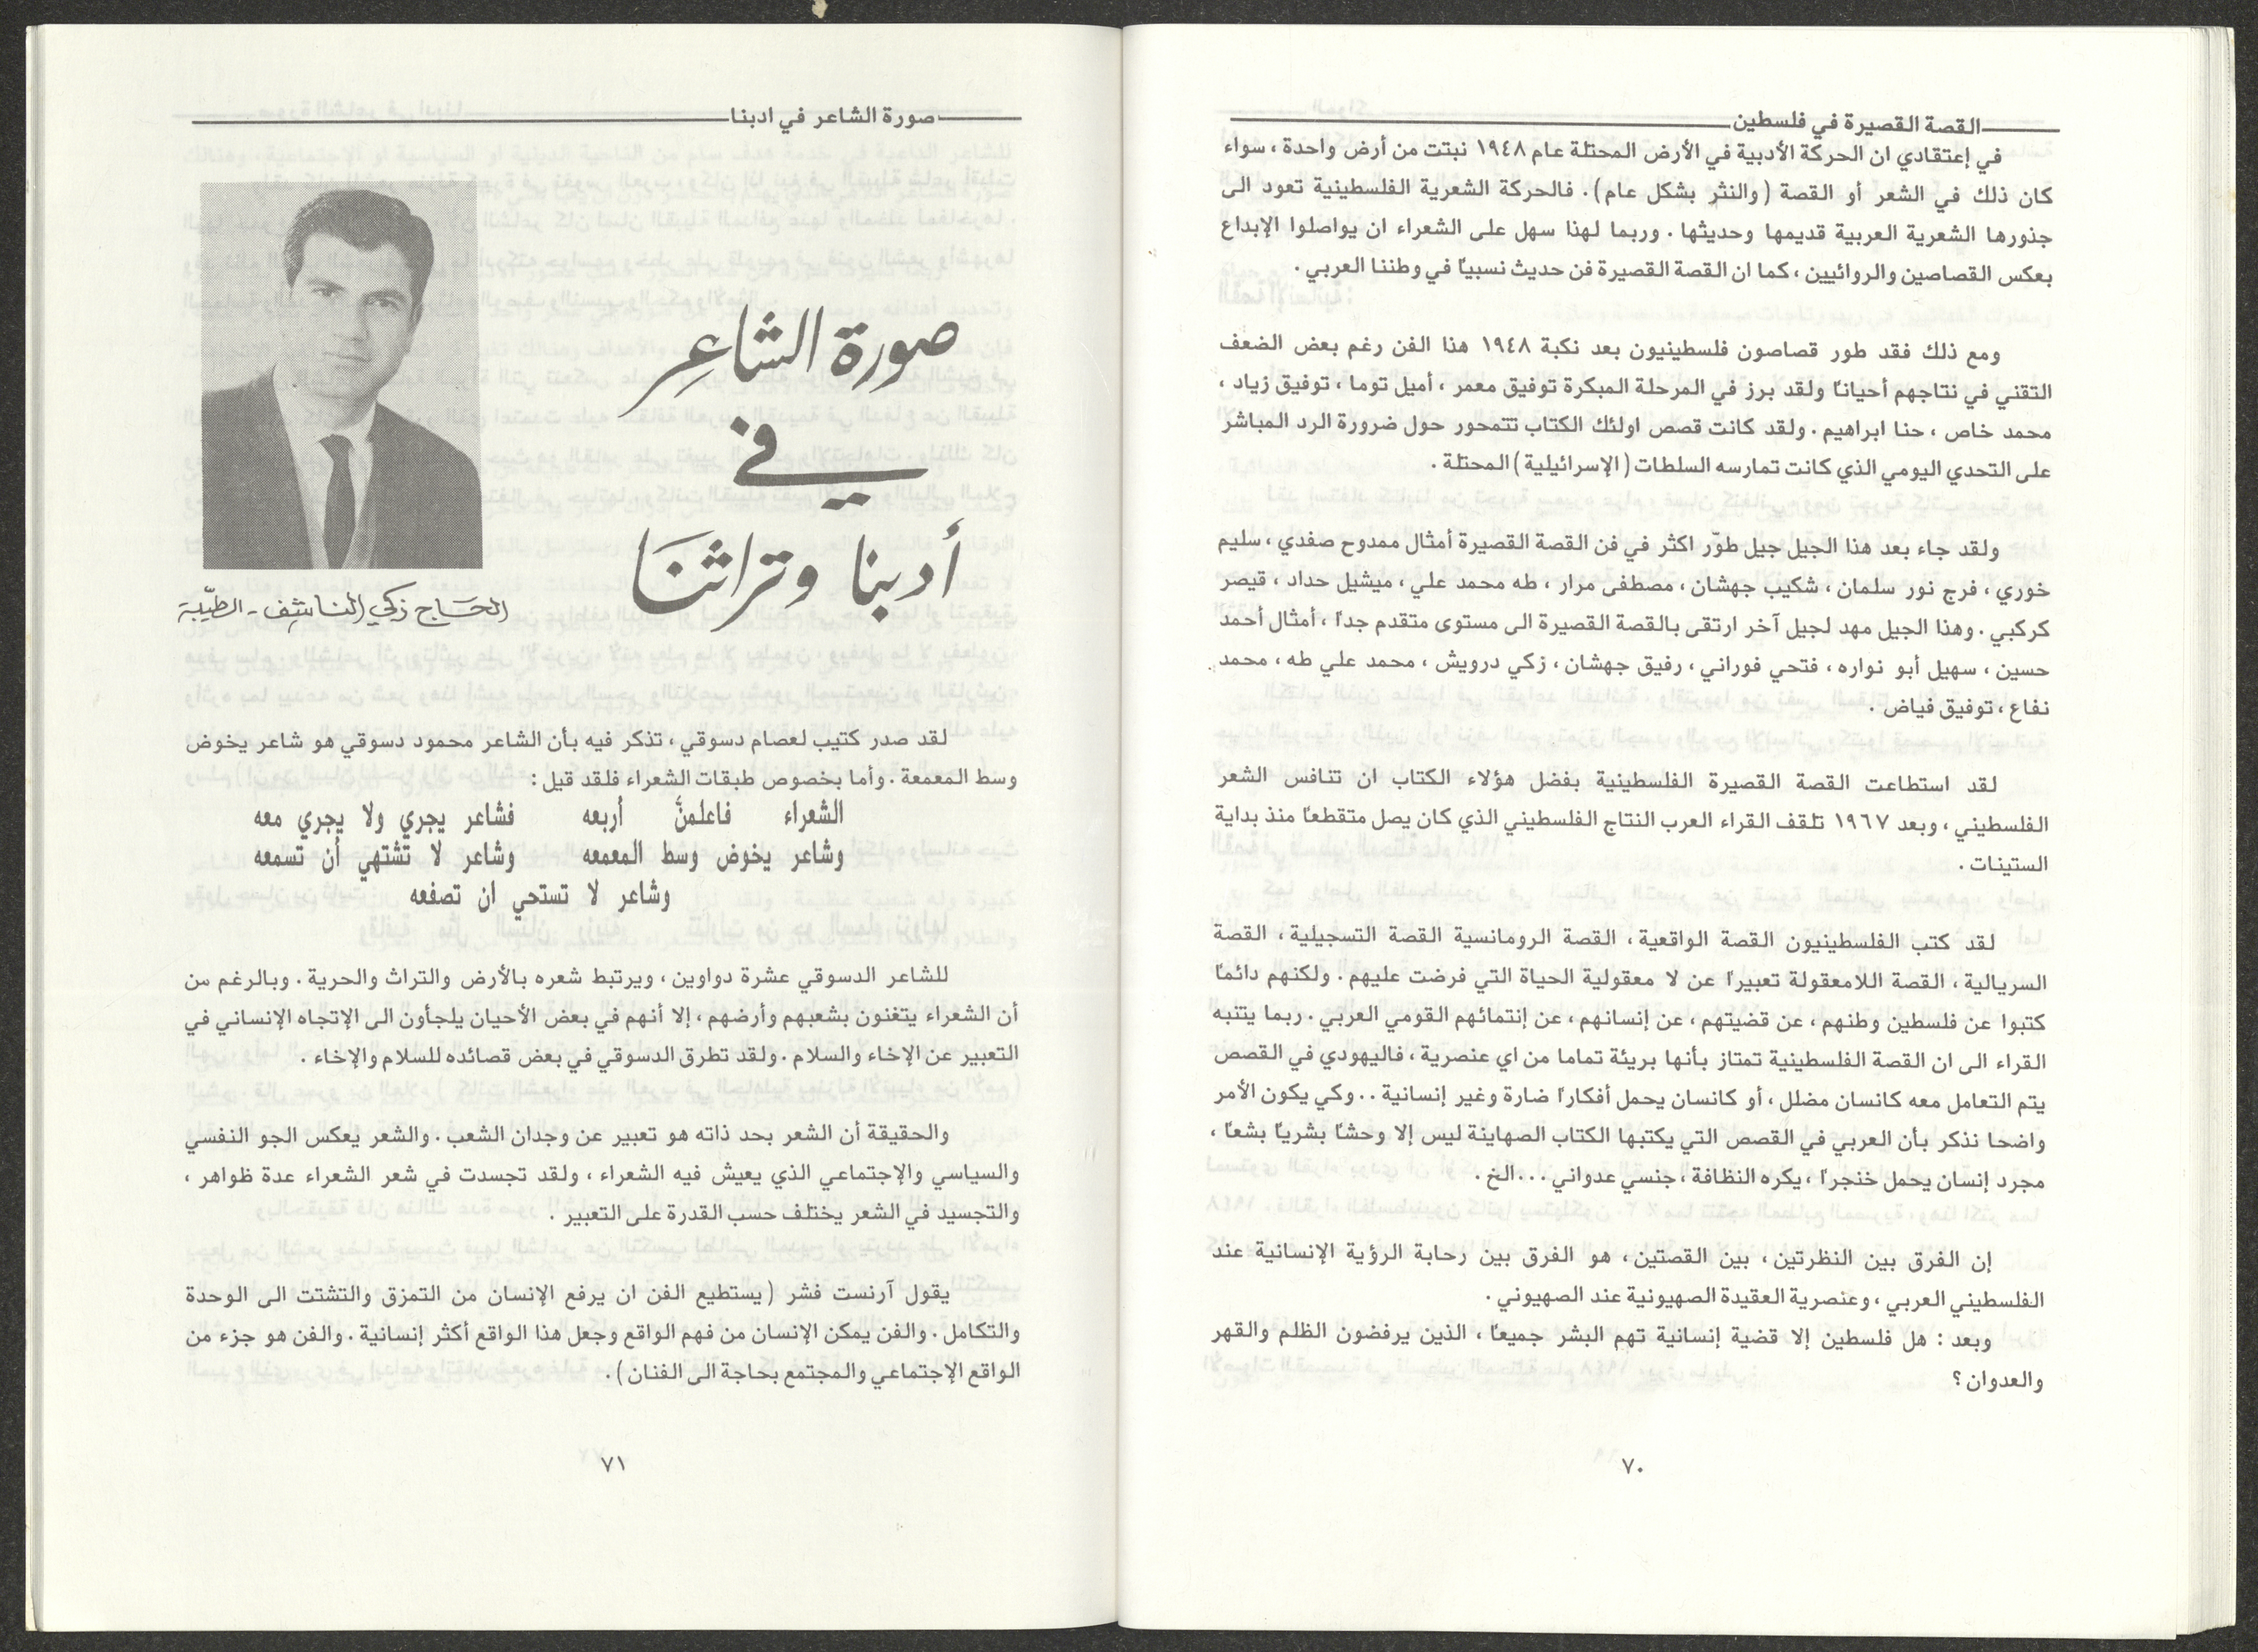 القصة القصيرة في فلسطين
في إعتقادي ان الحركة الأدبية في الأرض المحتلة عام ١٩٤٨ نبتت من أرض واحدة ، سواء
كان ذلك في الشعر أو القصة (والنثر بشكل عام) . فالحركة الشعرية الفلسطينية تعود الى
جذورها الشعرية العربية قديمها وحديثها . وربما لهذا سهل على الشعراء ان يواصلوا الإبداع
بعكس القصاصين والروائيين ، كما ان القصة القصيرة فن حديث نسبياً في وطننا العربي .
ومع ذلك فقد طور قصاصون فلسطينيون بعد نكبة ١٩٤٨ هذا الفن رغم بعض الضعف
التقني في نتاجهم أحياناً ولقد برز في المرحلة المبكرة توفيق معمر ، أميل توما ، توفيق زياد ،
محمد خاص ، حنا ابراهيم . ولقد كانت قصص اولئك الكتاب تتمحور حول ضرورة الرد المباشر
على التحدي اليومي الذي كانت تمارسه السلطات (الإسرائيلية) المحتلة .
ولقد جاء بعد هذا الجيل جيل طوّر اكثر في فن القصة القصيرة أمثال ممدوح صفدي ، سليم
خوري ، فرج نور سلمان ، شكيب جهشان ، مصطفى مرار ، طه محمد علي ، ميشيل حداد ، قيصر
كركبي . وهذا الجيل مهد لجيل آخر ارتقى بالقصة القصيرة الى مستوى متقدم جداً ، أمثال أحمد
حسين ، سهيل أبو نواره ، فتحي فوراني ، رفيق جهشان ، زكي درويش ، محمد علي طه ، محمد
نفاع ، توفيق فياض .
لقد استطاعت القصة القصيرة الفلسطينية بفضل هؤلاء الكتاب ان تنافس الشعر
الفلسطيني ، وبعد ١٩٦٧ تلقف القراء العرب النتاج الفلسطيني الذي كان يصل متقطعاً منذ بداية
الستينات .
لقد كتب الفلسطينيون القصة الواقعية ، القصة الرومانسية القصة التسجيلية ، القصة
السريالية ، القصة اللامعقولة تعبيراً عن لا معقولية الحياة التي فرضت عليهم . ولكنهم دائماً
كتبوا عن فلسطين وطنهم ، عن قضيتهم ، عن إنسانهم ، عن إنتمائهم القومي العربي . ربما يتنبه
القراء الى ان القصة الفلسطينية تمتاز بأنها بريئة تماما من اي عنصرية ، فاليهودي في القصص
يتم التعامل معه كانسان مضلل ، أو كانسان يحمل أفكاراً ضارة وغير إنسانية . . وكي يكون الأمر
واضحا نذكر بأن العربي في القصص التي يكتبها الكتاب الصهاينة ليس إلا وحشاً بشرياً بشعاً ،
مجرد إنسان يحمل خنجراً ، يكره النظافة ، جنسي عدواني . . . الخ .
إن الفرق بين النظرتين ، بين القصتين ، هو الفرق بين رحابة الرؤية الإنسانية عند
الفلسطيني العربي ، وعنصرية العقيدة الصهيونية عند الصهيوني .
وبعد : هل فلسطين إلا قضية إنسانية تهم البشر جميعاً ، الذين يرفضون الظلم والقهر
والعدوان ؟
٧٠
صورة الشاعر في ادبنا
صورة الشاعر
في
أدبنا وتراثنا
الحاج زكي الناشف - الطيّبة
لقد صدر كتيب لعصام دسوقي ، تذكر فيه بأن الشاعر محمود دسوقي هو شاعر يخوض
وسط المعمعة . وأما بخصوص طبقات الشعراء فلقد قيل :
الشعراء فاعلمنَّ أربعه فشاعر يجري ولا يجري معه
وشاعر يخوض وسط المعمعه وشاعر لا تشتهي أن تسمعه
وشاعر لا تستحي ان تصفعه
للشاعر الدسوقي عشرة دواوين ، ويرتبط شعره بالأرض والتراث والحرية . وبالرغم من
أن الشعراء يتغنون بشعبهم وأرضهم ، إلا أنهم في بعض الأحيان يلجأون الى الإتجاه الإنساني في
التعبير عن الإخاء والسلام . ولقد تطرق الدسوقي في بعض قصائده للسلام والإخاء .
والحقيقة أن الشعر بحد ذاته هو تعبير عن وجدان الشعب . والشعر يعكس الجو النفسي
والسياسي والإجتماعي الذي يعيش فيه الشعراء ، ولقد تجسدت في شعر الشعراء عدة ظواهر ،
والتجسيد في الشعر يختلف حسب القدرة على التعبير .
يقول آرنست فشر (يستطيع الفن ان يرفع الإنسان من التمزق والتشتت الى الوحدة
والتكامل . والفن يمكن الإنسان من فهم الواقع وجعل هذا الواقع أكثر إنسانية . والفن هو جزء من
الواقع الإجتماعي والمجتمع بحاجة الى الفنان) .
٧١